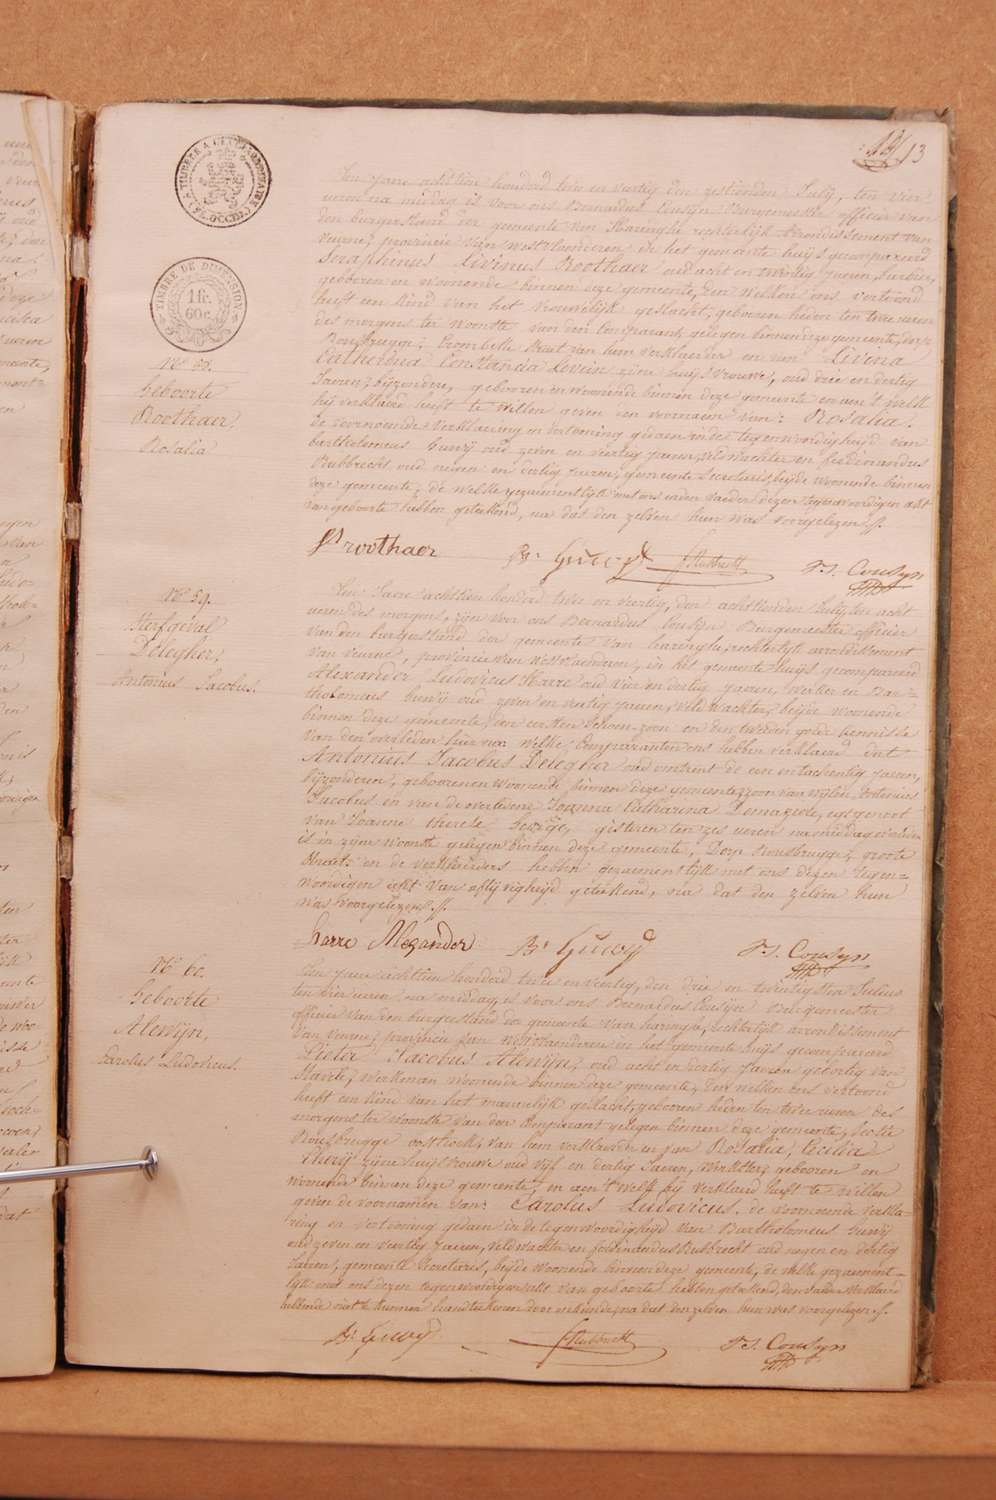 13
TIMBRE DE DIMENSION
1 fr.
60 c.
No. 58.
Geboorte
Roothaer,
Rosalia
Ten Jaere achttien honderd drie en veertig den zestienden July, ten vier
uren na middag is voor ons Bernardus Cousyn Burgemeester officier van
den burgerstand der gemeente van Haringhe rechterlijk Arrondissement van
Veurne, provincie van Westvlaenderen in het gemeente huijs gecompareerd
Seraphinus Livinus Roothaer oud acht en twintig jaeren,
geboren en woonende binnen deze gemeente, den welken ons vertoond
heeft een kind van het vrouwelijk geslacht, geboren heden ten twee uren
des morgens ter woonste van den comparant, gelegen binnen deze gemeente, dorp
Rousbrugge, straet van hem verklaerder en van Livina
Catherina Constancia Levein zijne huijsvrouwe, oud drie en dertig
Jaeren, bijzondere, geboren en woonende binnen deze gemeente en aen 't welk
hij verklaerd heeft te willen geven den voornaem van: Rosalia.
de voornoemde verklaering en vertooning gedaen in de tegenwoordigheijd van
bartholomeus Huwij oud zeven en veertig jaeren, veldwachter en ferdinandus
Rubbrecht oud negen en dertig jaeren, gemeente secretaris, beijde woonende binnen
deze gemeente, de welke gezaementlijk met ons en den vaeder dezen tegenwoordigen akt
van geboorte hebben geteekend, na dat den zelven hun was voorgelezen ./.
S. roothaer B. Huwij F. Rubbrecht B. J. Cousyn
No. 59.
Sterfgeval
Delegher,
Antonius Jacobus.
Ten Jaere achttien honderd drie en veertig, den achttienden July ten acht
uren des morgens, zijn voor ons Bernardus Cousyn Burgemeester officier
van den burgerstand der gemeente van haringhe, rechterlijk arrondissement
van veurne, provincie van Westvlaenderen, in het gemeente huijs gecompareerd
Alexander Ludovicus Harre oud vier en dertig jaeren, werker en Bar=
tholomeus huwij oud zeven en veertig jaeren, veldwachter, beijde woonende
binnen deze gemeente, den eersten schoon-zoon en den tweeden goede kennisse
van den overleden hier na: Welke comparanten ons hebben verklaerd dat
Antonius Jacobus Delegher oud omtrent de een en tachentig jaeren,
bijzonderen, geboren en woonende binnen deze gemeente zoon van wijlen Antonius
Jacobus en van de overledene Joanna Catharina Demazede, egtgenoot
van Joanne therese, gisteren ten zes uren namiddag overleden
is in zijne woonste gelegen binnen deze gemeente, Dorp Rousbrugge, groote
straet; en de verklaerders hebben gezaementlijk met ons dezen tegen=
woordigen akt van aflijvigheijd geteekend, na dat den zelven hun
was voorgelezen ./.
harre Alexander B. Huwij B. J. Cousyn
No. 60.
Geboorte
Alewijn,
Carolus Ludovicus.
Ten jaere achttien honderd drie en veertig, den drie en twintigsten Julius
ten vier uren na middag, is voor ons Bernardus Cousyn Burgemeester
officier van den burgerstand der gemeente van haringhe, rechterlijk arrondissement
van veurne, provincie van Westvlaenderen in het gemeente huijs gecompareerd
Pieter Jacobus Alewijn, oud acht en dertig Jaeren geboortig van
Stavele, Werkman woonende binnen deze gemeente, den welken ons vertoond
heeft een kind van het mannelijk geslacht, geboren heden ten twee uren des
morgens ter woonste van den comparant gelegen binnen deze gemeente, sectie
Rousbrugge oosthoek, van hem verklaerder en van Rosalia, Cecilia
Thery zijne huijsvrouwe oud vijf en dertig Jaeren, werkster, geboren en
woonende binnen deze gemeente, en aen 't welk hij verklaerd heeft te willen
geven de voornamen van: Carolus Ludovicus. de voornoemde verkla=
ring en vertooning gedaen in de tegenwoordigheijd van Bartholomeus huwij
oud zeven en veertig jaeren, veldwachter en ferdinandus Rubbrecht oud negen en dertig
Jaeren, gemeente secretaris, beijde woonende binnen deze gemeente, de welke gezaement=
lijk met ons dezen tegenwoordigen akt van geboorte hebben geteekend, den vader verklaerd
hebbende niet te kunnen handteekenen door onkunde, na dat den zelven hun was voorgelezen ./.
B. Huwij F. Rubbrecht B. J. Cousyn